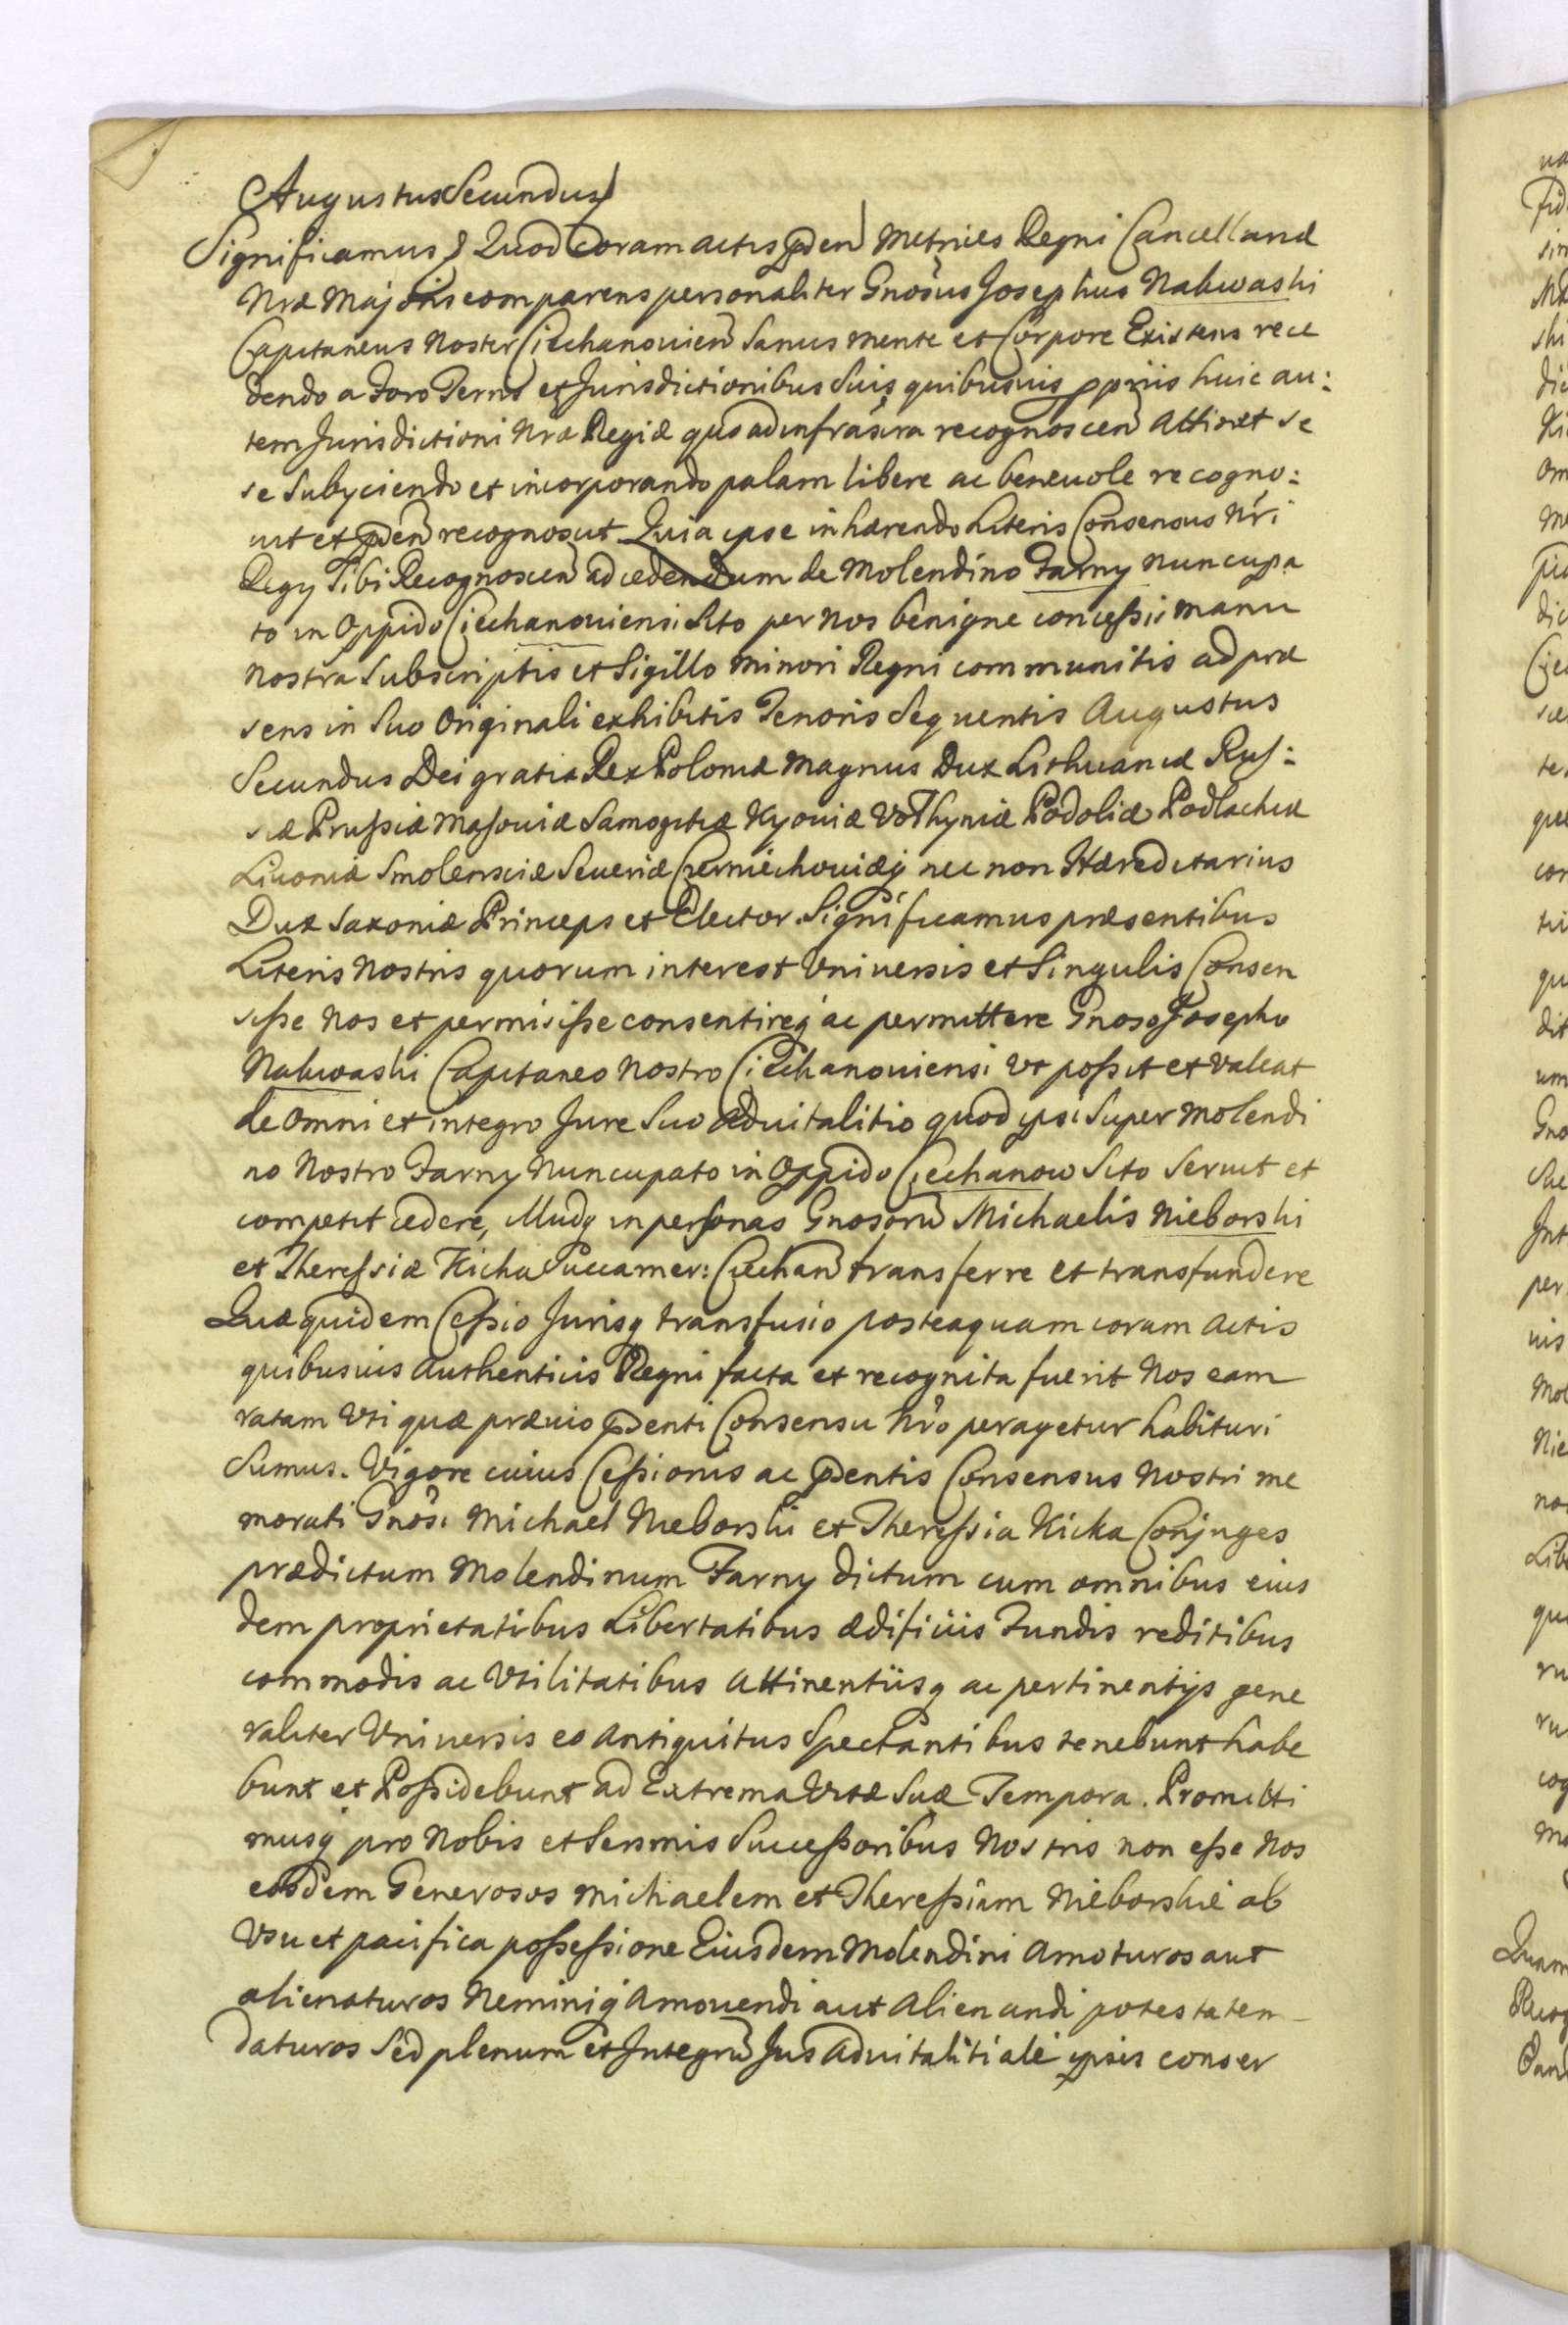 Augustus Secundus
Significamus Quod Coram actis pñden Metrices Regni Cancellariæ
Nræ Majoris comparens personaliter Gnosus Josephus Nakwaski
Capitaneus Noster Ciechanouien Sanus mente et Corpore Existens rece
dendo a Foro Terris et Jurisdictionibus Suis quibusuis ppriis huic au:
tem Jurisdictioni Nræ Regiæ quo ad infrascra recognoscen Attinet se
se Subyciendo et incorporando palam libere ac beneuole recogno:
uit et pñden recognoscit. Quia ipse inhærendo Literis Consensus Nri
Regy Sibi Recognoscen ad cedendum de Molendino Farny nuncupa
to in Oppido Ciechanouiensi Sito per Nos benigne concessis manu
Nostra Subscriptis et Sigillo Minori Regni communitis ad præ
sens in Suo Originali exhibitis Tenoris Sequentis Augustus
Secundus Dei gratia Rex Poloniæ Magnus Dux Lithuaniæ Rus:
siæ Prussiæ Masouiæ Samogitiæ Kyouiæ Volhyniæ Podoliæ Podlachiæ
Liuoniæ Smolensciæ Seueriæ Czerniechouiæq nec non Hæreditarius
Dux Saxoniæ Princeps et Elector. Significamus præsentibus
Literis Nostris quorum interest Vniuersis et Singulis Consen
sisse Nos et permisisse consentireq ac permittere Gnoso Josepho
Nakwaski Capitaneo Nostro Ciechanouiensi Vt possit et Valeat
de Omni et integro Jure Suo Aduitalitio quod ipsi Super Molendi
no Nostro Farny Nuncupato in Oppido Ciechanow Sito Seruit et
competit cedere, Illudq in personas Gnosorũ Michaelis Nieborski
et Theressiæ Kicka Succamer: Ciechan transferre et transfundere
Quæ quidem Cessio Jurisq transfusio posteaquam coram Actis
quibusuis Authenticis Regni facta et recognita fuerit Nos eam
ratam Vti quæ præuio pñdenti Consensu Nro peragetur habituri
Sumus. Vigore cuius Cessionis ac pñdentis Consensus Nostri me
morati Gnosi Michael Nieborski et Theressia Kicka Conjuges
prædictum Molendinum Farny dictum cum omnibus eius
dem proprietatibus Libertatibus ædificiis Fundis reditibus
commodis ac Vtilitatibus Attinentiisq ac pertinentijs gene
raliter Vniuersis eo antiquitus Spectantibus tenebunt habe
bunt et Possidebunt ad Extrema Vitæ Suæ Tempora. Promitti
musq pro Nobis et Serenmis Successoribus Nostris non esse Nos
eosdem Generosos Michaelem et Theressiam Nieborskie ab
Vsu et pacifica possessione Eiusdem Molendini Amoturos aut
alienaturos Neminiq Amouendi aut Alienandi potestatem
daturos Sed plenum et Integrũ Jus Aduitalitiale ipsis conser